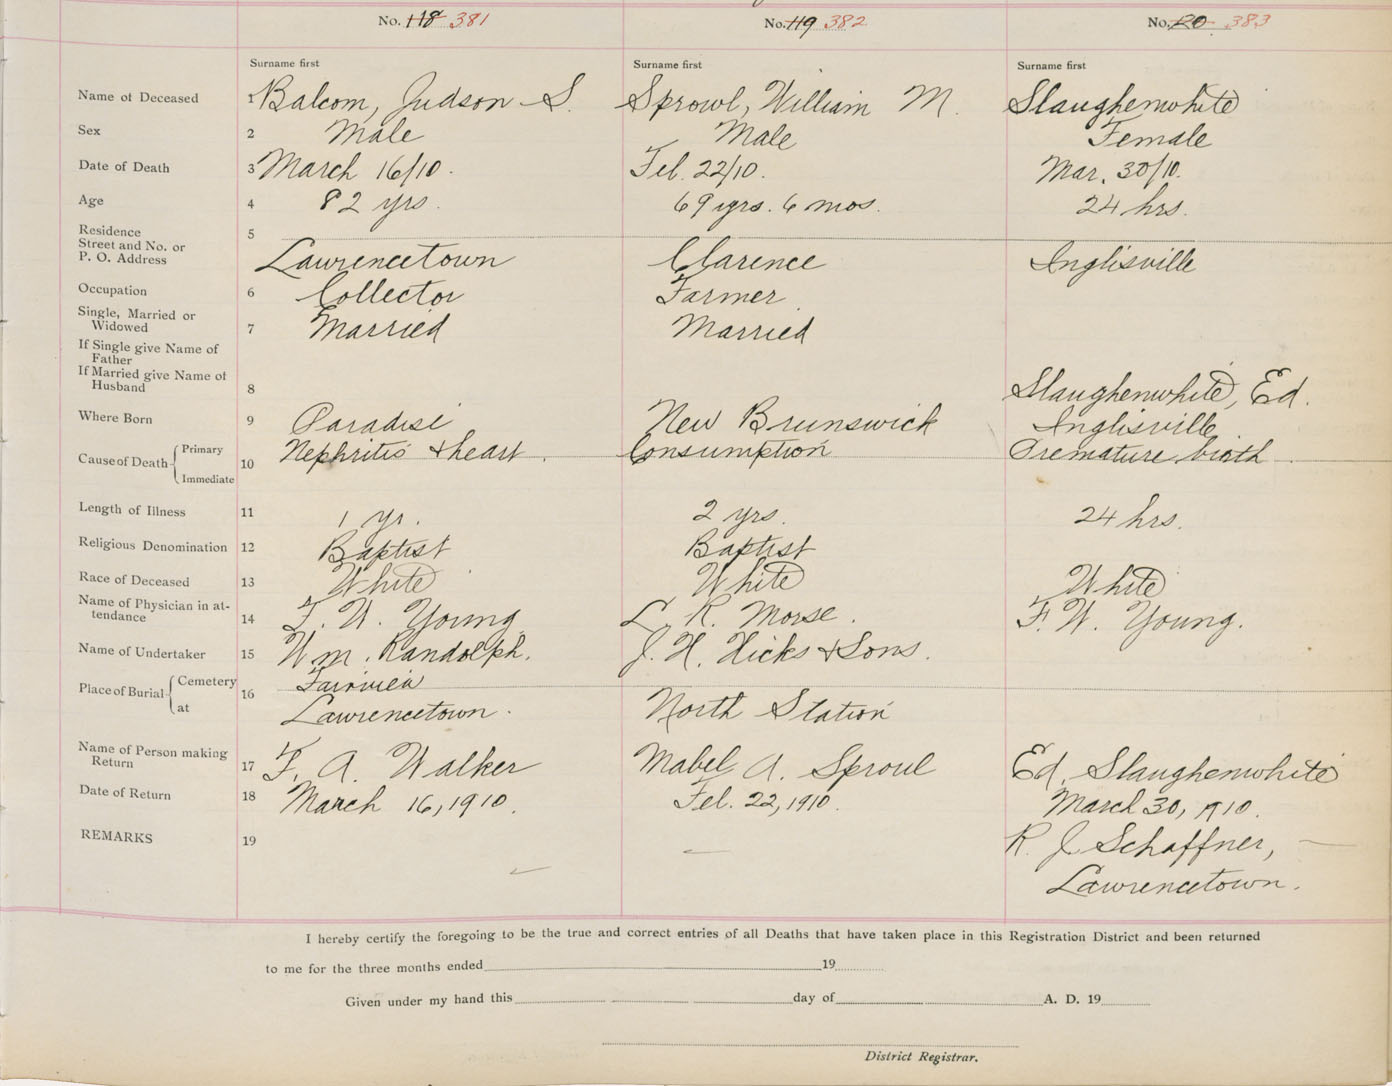 No. 118 381 No. 119 382 No. 120 383
Surname first Surname first Surname first
Name of Deceased 1 Balcom, Judson S. Sprowl, William M. Slaughenwhite
Sex 2 Male Male Female
Date of Death 3 March 16/10. Feb. 22/10. Mar. 30/10.
Age 4 82 yrs. 69 yrs. 6 mos. 24 hrs.
Residence 5
Street and No. or
P. O. Address Lawrencetown Clarence Inglisville
Occupation 6 Collector Farmer
Single, Married or
Widowed 7 Married Married
If Single give Name of
Father
If Married give Name of
Husband 8 Slaughenwhite, Ed.
Where Born 9 Paradise New Brunswick Inglisville
Cause of Death Primary Nephritis & heart. Consumption Premature birth
10
Immediate
Length of Illness 11 1 yr. 2 yrs. 24 hrs.
Religious Denomination 12 Baptist Baptist
Race of Deceased 13 White White White
Name of Physician in at-
tendance 14 F. W. Young L. R. Morse. F. W. Young.
Name of Undertaker 15 Wm. Randolph. J. H. Hicks & Sons.
Place of Burial Cemetery 16 Fairview
at Lawrencetown. North Station
Name of Person making
Return 17 F. A. Walker Mabel A. Sproul Ed. Slaughenwhite
Date of Return 18 March 16, 1910. Feb. 22, 1910. March 30, 1910.
REMARKS 19 R. J. Schaffner,
Lawrencetown.
I hereby certify the foregoing to be the true and correct entries of all Deaths that have taken place in this Registration District and been returned
to me for the three months ended 19
Given under my hand this day of A. D. 19
District Registrar.